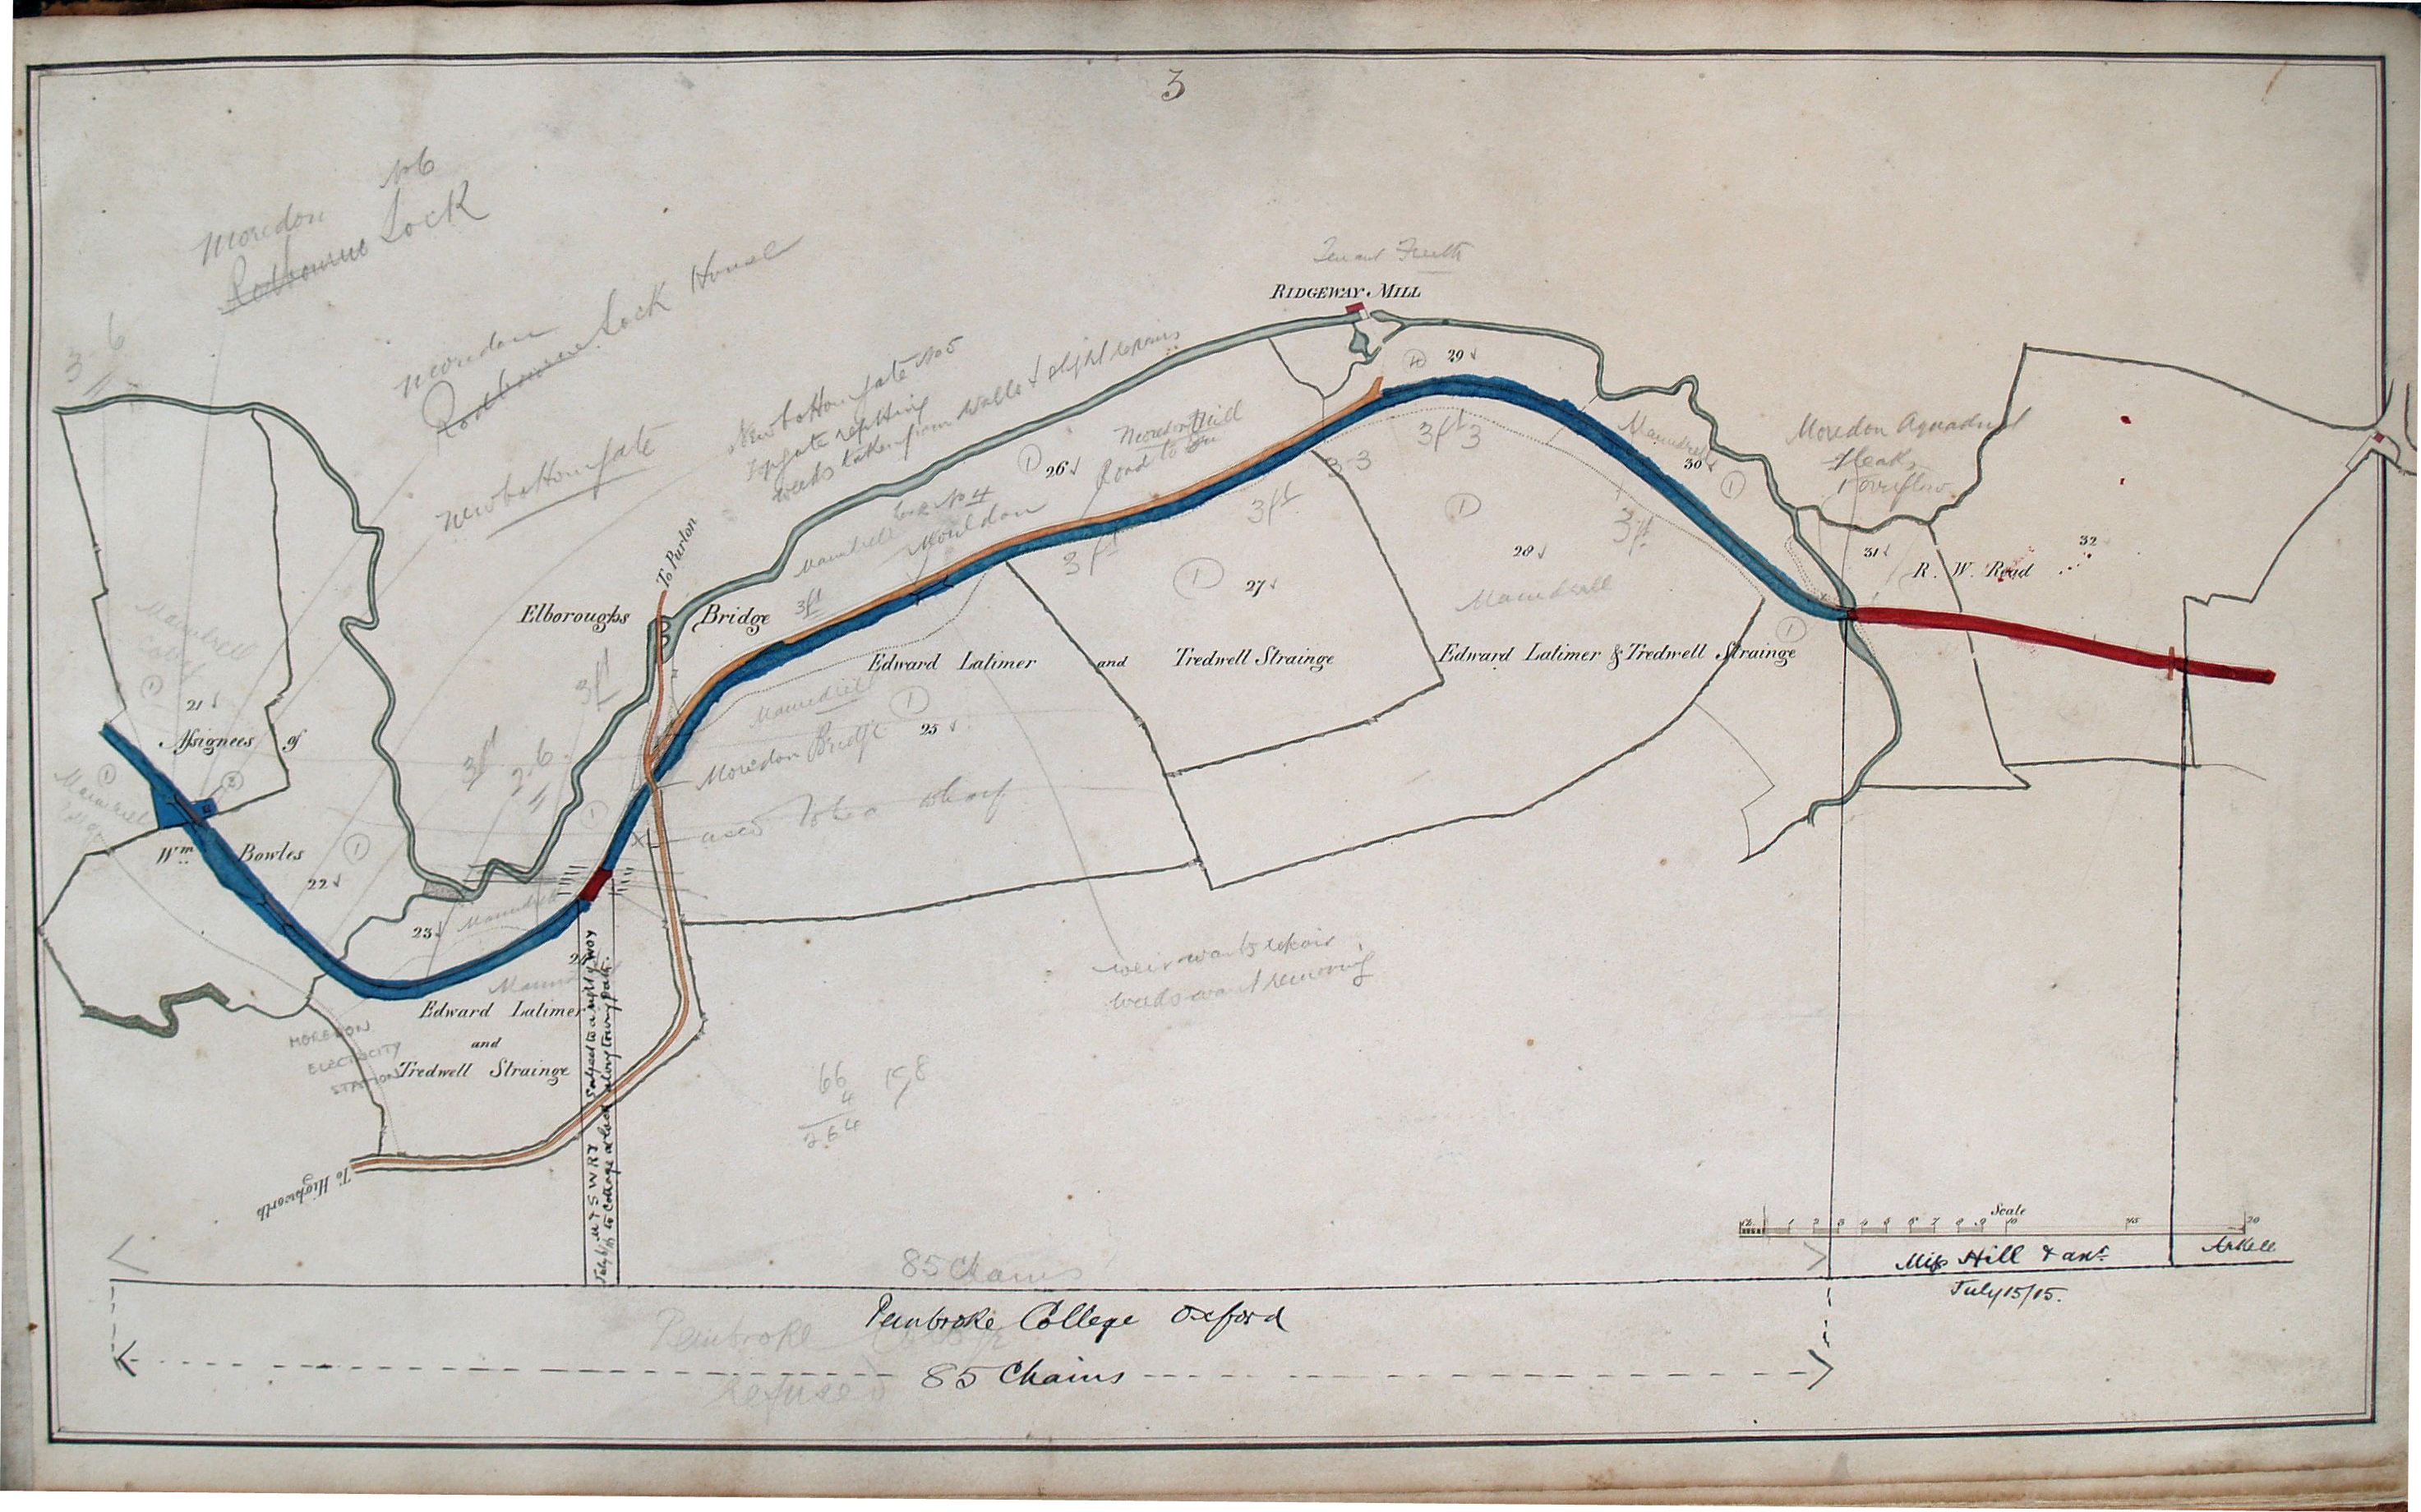 3
No 6
Moredon
Rodbourne Lock
Moredon
Rodbourne Lock House
3 6
11
New bottom gate
New bottom gate No 5
Top gate repitting
weeds taken from walls & slight repairs
Tenant
RIDGEWAY MILL
4
29
1
26
Road to
No 4
Mouldon
3ft
3ft
3ft
3-3
3ft 3
3ft
Maundrell
30
1
Moredon Aquaduct
1 leak
1 overflow
31
R. W. Road
32
To Purton
Elboroughs Bridge
3ft
3ft
3.6
11
Edward Latimer and Tredwell Strainge
1
27
1
28
Maundrell
Edward Latimer & Tredwell Strainge
1
Maundrell
1
25
Moredon Bridge
used to be a wharf
Maundrell
1
21
Assignees of
1
2
Wm Bowles
1
22
1
23
Maundrell
24
Edward Latimer
and
Tredwell Strainge
MOREDON
ELECTRICITY
STATION
To Highworth
M & S W RY Subject to a right of way
to Cottage at Lock along towing path.
weir wants repair
weeds want removing
66
4
264
Scale
1 2 3 4 5 6 7 8 9 10 15 20
85 Chains
Miss Hill & anr
Arkell
July 15/15.
Pembroke College Oxford
Pembroke College
85 Chains
Refused